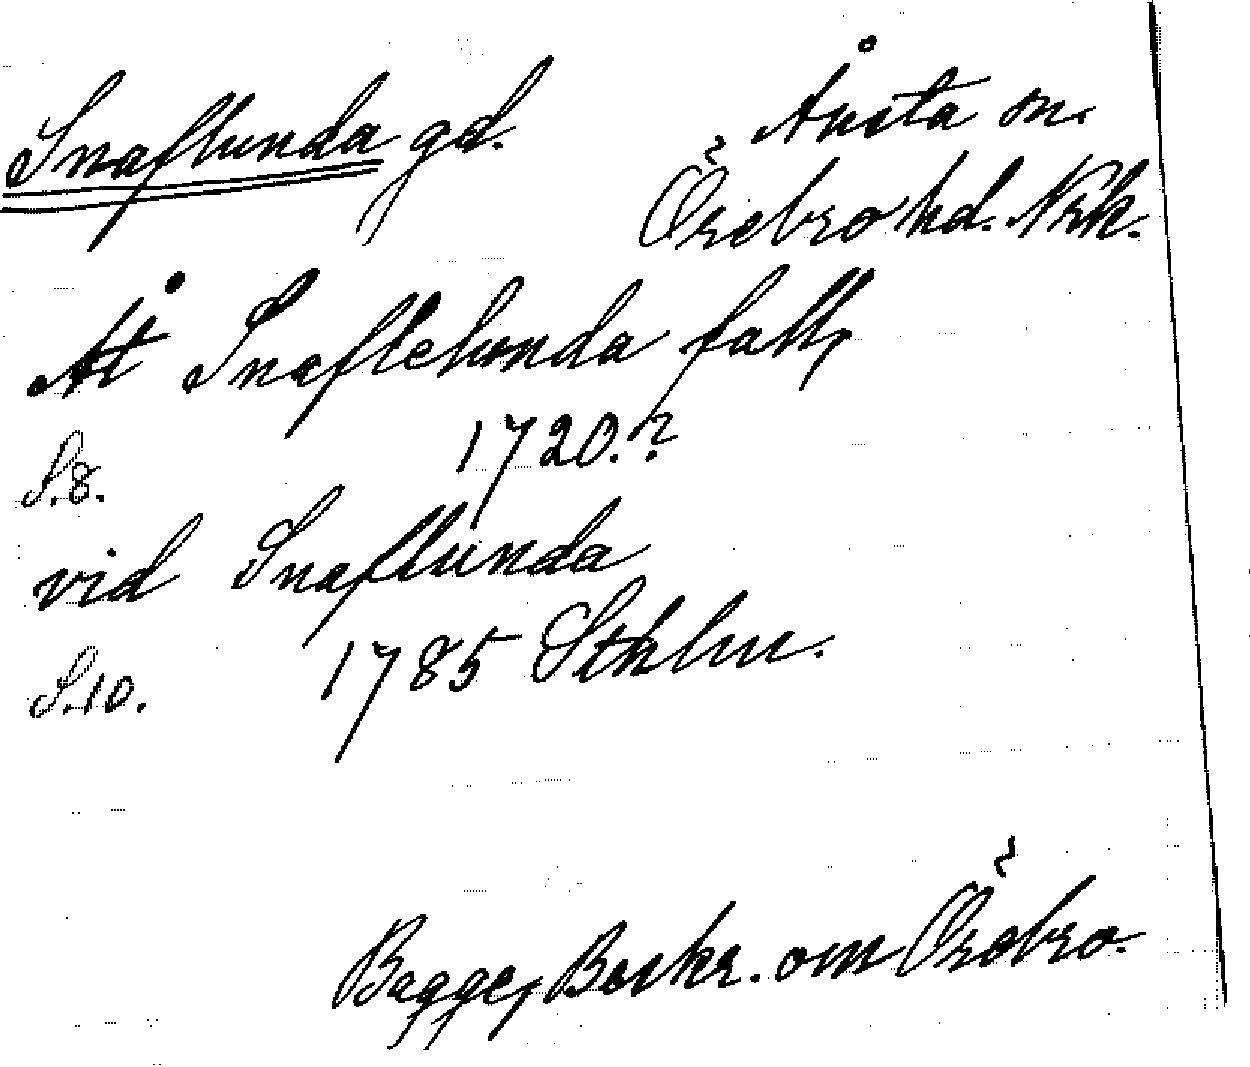 Snaflunda gd.
Ånsta sn.
Örebro hd. Nrk.
Åt Snaflelunda fall,
S.8. 1720.?
vid Snaflunda
S.10. 1785 Sthlm.
Bagge, Beskr. om Örebro.